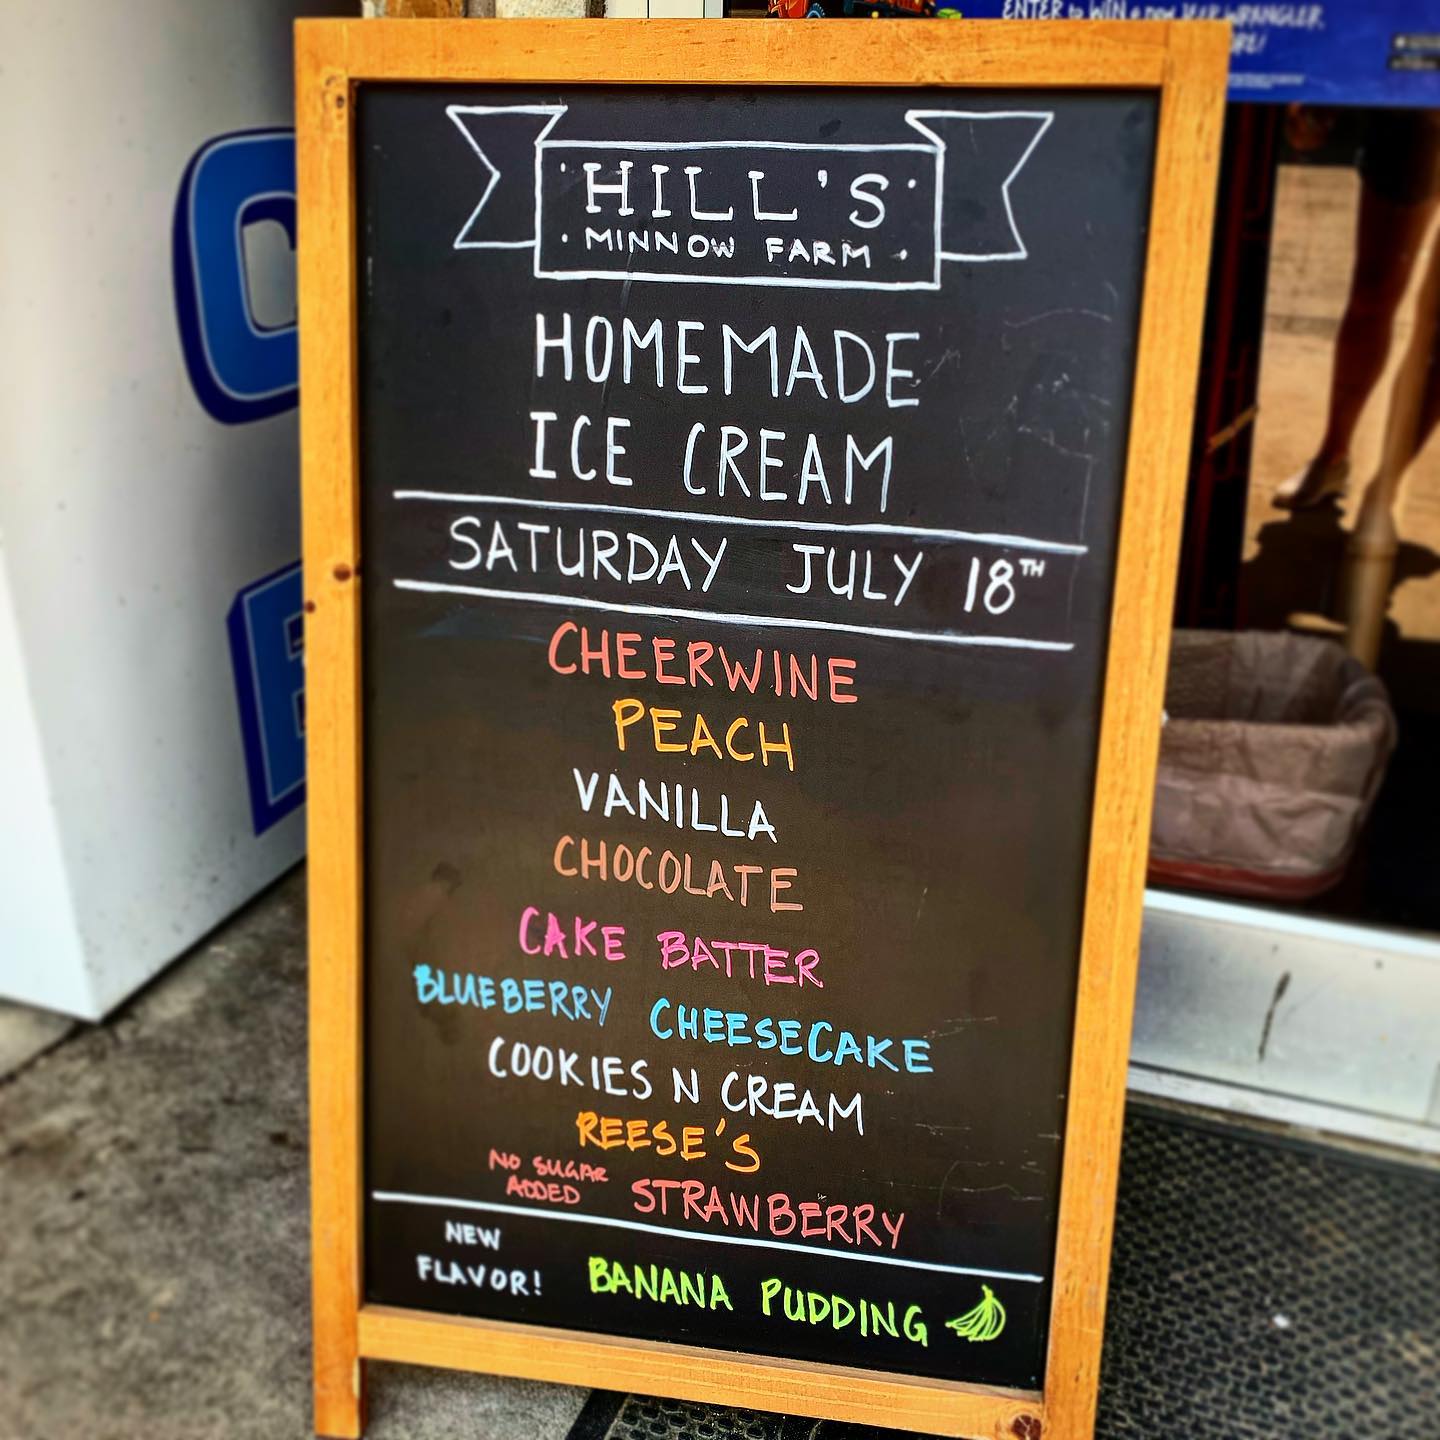 ENTER to WIN a new JEEP WRANGLER.
HILL'S
MINNOW FARM
HOMEMADE
ICE CREAM
SATURDAY JULY 18TH
CHEERWINE
PEACH
VANILLA
CHOCOLATE
CAKE BATTER
BLUEBERRY CHEESECAKE
COOKIES N CREAM
REESE'S
NO SUGAR
ADDED STRAWBERRY
NEW
FLAVOR! BANANA PUDDING